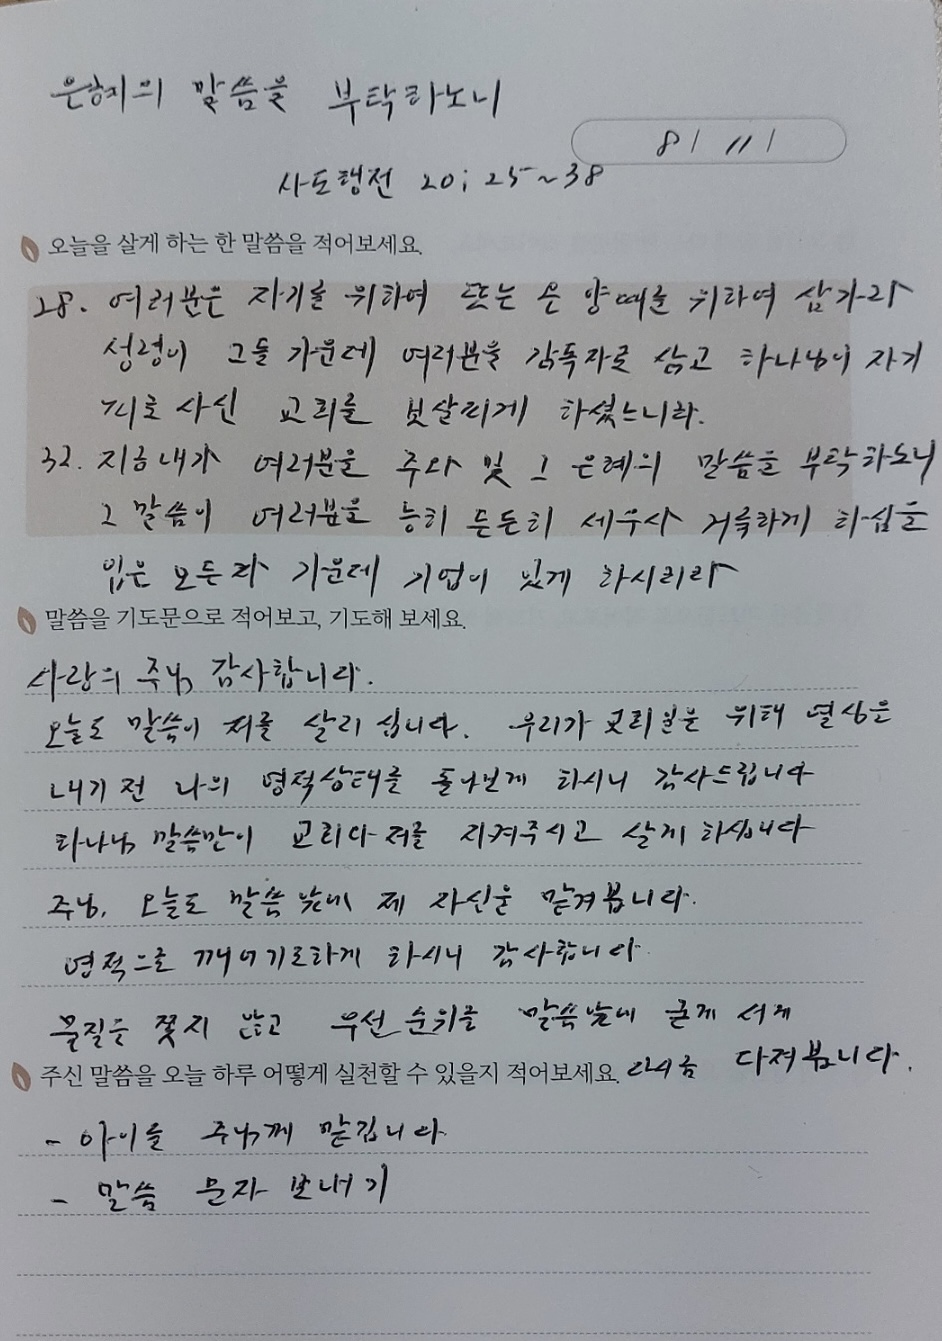 은혜의 말씀을 부탁하노니
8/ 11/
사도행전 20; 25~38
오늘을 살게 하는 한 말씀을 적어보세요.
28. 여러분은 자기를 위하여 또는 온 양떼를 위하여 삼가라
성령이 그들 가운데 여러분을 감독자로 삼고 하나님이 자기
피로 사신 교회를 보살피게 하셨느니라.
32. 지금 내가 여러분을 주와 및 그 은혜의 말씀을 부탁하노니
그 말씀이 여러분을 능히 든든히 세우사 거룩하게 하심을
입은 모든 자 가운데 기업이 있게 하시리라
말씀을 기도문으로 적어보고, 기도해 보세요.
사랑의 주님 감사합니다.
오늘도 말씀이 저를 살리십니다. 우리가 교회 일을 위해 열심을
내기 전 나의 영적상태를 돌아보게 하시니 감사드립니다
하나님 말씀만이 교회와 저를 지켜주시고 살게 하십니다
주님, 오늘도 말씀 앞에 제 자신을 맡겨봅니다.
영적으로 깨어 기도하게 하시니 감사합니다
물질을 쫓지 않고 우선순위를 말씀앞에 굳게 서게
마음 다져봅니다.
주신 말씀을 오늘 하루 어떻게 실천할 수 있을지 적어보세요.
- 아이를 주님께 맡깁니다
- 말씀 문자 보내기